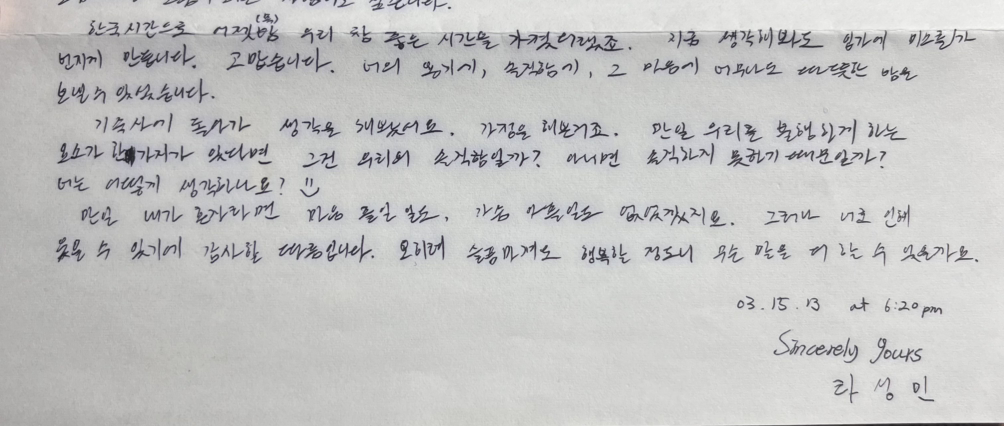 싶습니다.
한국시간으로 어젯밤(목) 우리 참 좋은 시간을 가졌더랬죠. 지금 생각해봐도 입가에 미소가
번지게 만듭니다. 고맙습니다. 너의 용기에, 솔직함에, 그 마음에 너무나도 따뜻한 밤을
보낼 수 있었습니다.
기숙사에 돌아가 생각을 해봤어요. 가정을 해본거죠. 만일 우리를 불행하게 하는
요소가 한가지가 있다면 그건 우리의 솔직함일까? 아니면 솔직하지 못하기 때문일까?
너는 어떻게 생각하나요?
만일 내가 혼자라면 마음 졸일 일도, 가슴 아플일도 없었겠지요. 그러나 너로 인해
웃을 수 있기에 감사할 따름입니다. 오히려 슬픔마저도 행복할 정도니 무슨 말을 더 할 수 있을까요.
03.15.13 at 6:20pm
Sincerely yours
타성민